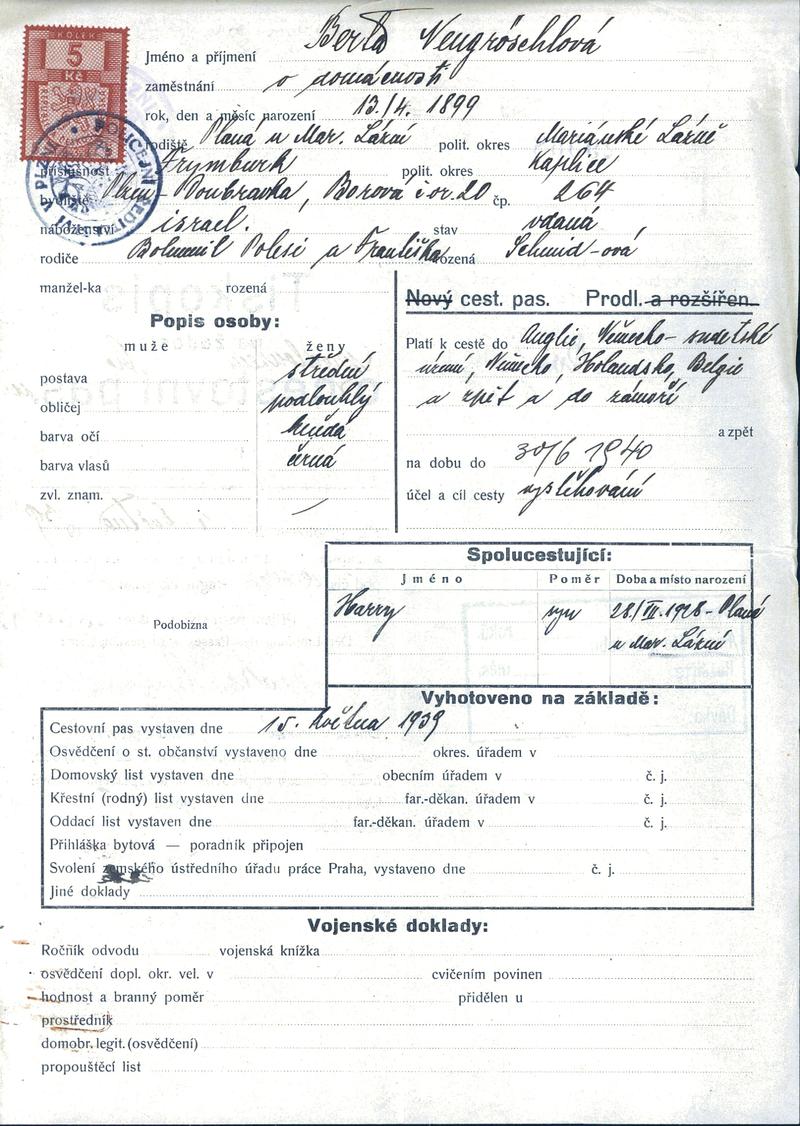 KOLEK
5
Kč
POLICEJNÍ ŘEDITELSTVÍ V PLZNI
Jméno a příjmení Berta Neugröschlová
zaměstnání v domácnosti
rok, den a měsíc narození 13./4. 1899
rodiště Planá u Mar. Lázní polit. okres Mariánské Lázně
příslušnost Frymburk polit. okres Kaplice
bydliště Plzeň - Doubravka, Borová č. or. 20 čp. 264
náboženství israel. stav vdaná
rodiče Bohumil Polesi a Františka rozená Schmid-ová
manžel-ka rozená
Nový cest. pas. Prodl. a rozšířen.
Popis osoby:
muže ženy
postava střední
obličej podlouhlý
barva očí hnědá
barva vlasů černá
zvl. znam. —
Platí k cestě do Anglie, Německo - sudetské
území, Německo, Holandsko, Belgie
a zpět a do zámoří
a zpět
na dobu do 30/6 1940
účel a cíl cesty vystěhování
Podobizna
Spolucestující:
Jméno Poměr Doba a místo narození
Harry syn 28./III. 1928 - Planá
u Mar. Lázní
Vyhotoveno na základě:
Cestovní pas vystaven dne 15. května 1939
Osvědčení o st. občanství vystaveno dne okres. úřadem v
Domovský list vystaven dne obecním úřadem v č. j.
Křestní (rodný) list vystaven dne far.-děkan. úřadem v č. j.
Oddací list vystaven dne far.-děkan. úřadem v č. j.
Přihláška bytová — poradník připojen
Svolení zemského ústředního úřadu práce Praha, vystaveno dne č. j.
Jiné doklady
Vojenské doklady:
Ročník odvodu vojenská knížka
osvědčení dopl. okr. vel. v cvičením povinen
hodnost a branný poměr přidělen u
prostředník
domobr. legit. (osvědčení)
propouštěcí list